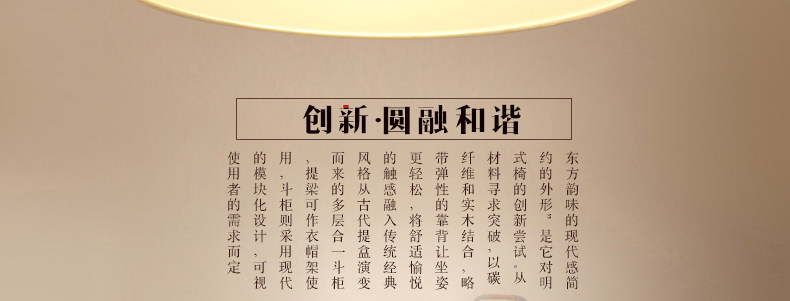 创新·圆融和谐
东方韵味的现代感简
约的外形”是它对明
式椅的创新尝试。从
材料寻求突破，以碳
纤维和实木结合，略
带弹性的靠背让坐姿
更轻松，将舒适愉悦
的触感融入传统经典
风格从古代提盒演变
而来的多层合一斗柜
，提梁可作衣帽架使
用，斗柜则采用现代
的模块化设计，可视
使用者的需求而定